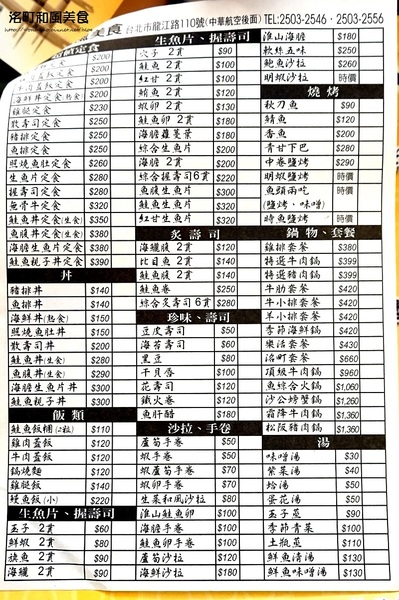 洛町和廚美食
美食 台北市龍江路110號(中華航空後面) TEL:2503-2546・2503-2556
定食
$200
$200
$200
海鮮丼定食(熟食) $200
雞腿定食 $230
散壽司定食 $250
豬排定食 $250
魚排定食 $250
照燒魚肚定食 $260
生魚片定食 $280
握壽司定食 $280
無骨牛定食 $320
鮭魚丼定食(生食) $350
魚腹丼定食(生食) $380
海膽生魚片定食 $380
鮭魚親子丼定食 $390
丼
豬排丼 $140
魚排丼 $140
海鮮丼(熟食) $150
照燒魚肚丼 $150
散壽司丼 $200
鮭魚丼(生食) $280
魚腹丼(生食) $290
海膽生魚片丼 $300
鮭魚親子丼 $300
飯類
鮭魚飯糰(2粒) $110
雞肉蓋飯 $120
牛肉蓋飯 $120
鍋燒麵 $120
雞腿飯 $140
鰻魚飯(小) $220
生魚片、握壽司
玉子 2貫 $60
鮮蝦 2貫 $80
旗魚 2貫 $90
海鱺 2貫 $90
生魚片、握壽司
穴子 2貫 $90
鮭魚 2貫
2貫
蝦卵 2貫 $130
鮭魚卵 2貫 $180
海膽 2貫
綜合生魚片 $200
海膽 2貫 $200
綜合握壽司6貫 $220
魚腹生魚片 $320
鮭魚生魚片 $320
紅甘生魚片 $320
炙壽司
海鱺腹 2貫 $120
比目魚 2貫 $140
鮭魚腹 2貫 $140
鮭魚卷 $250
綜合炙壽司6貫 $280
珍味、壽司
豆皮壽司 $50
海苔壽司 $60
黑豆 $80
干貝唇 $100
花壽司 $120
鐵火卷 $120
魚肝醋 $180
沙拉、手卷
蘆筍手卷 $50
蝦手卷 $50
蝦蘆筍手卷 $70
蝦卵手卷 $70
生菜和風沙拉 $80
淮山鮭魚卵 $100
海膽手卷 $100
鮭魚卵手卷 $100
蘆筍沙拉 $120
海鮮沙拉 $180
淮山海膽 $180
軟絲五味 $250
鮑魚沙拉 $260
明蝦沙拉 時價
燒烤
秋刀魚 $90
鯖魚 $120
香魚 $200
青甘下巴 $280
中卷鹽烤 $290
明蝦鹽烤 時價
魚頭兩吃 時價
(鹽烤、味噌)
時魚鹽烤 時價
鍋物、套餐
雞排套餐 $380
特選牛肉鍋 $399
特選豬肉鍋 $399
牛肋套餐 $420
牛小排套餐 $420
羊小排套餐 $420
季節海鮮鍋 $420
樂活套餐 $430
洛町套餐 $660
頂級牛肉鍋 $960
魚綜合火鍋 $1,060
沙公螃蟹鍋 $1,260
霜降牛肉鍋 $1,360
松阪豬肉鍋 $1,360
湯
味噌湯 $30
紫菜湯 $40
蛤湯 $50
蛋花湯 $50
玉子蒸 $90
季節青菜 $100
土瓶蒸 $110
鮮魚清湯 $130
鮮魚味噌湯 $130